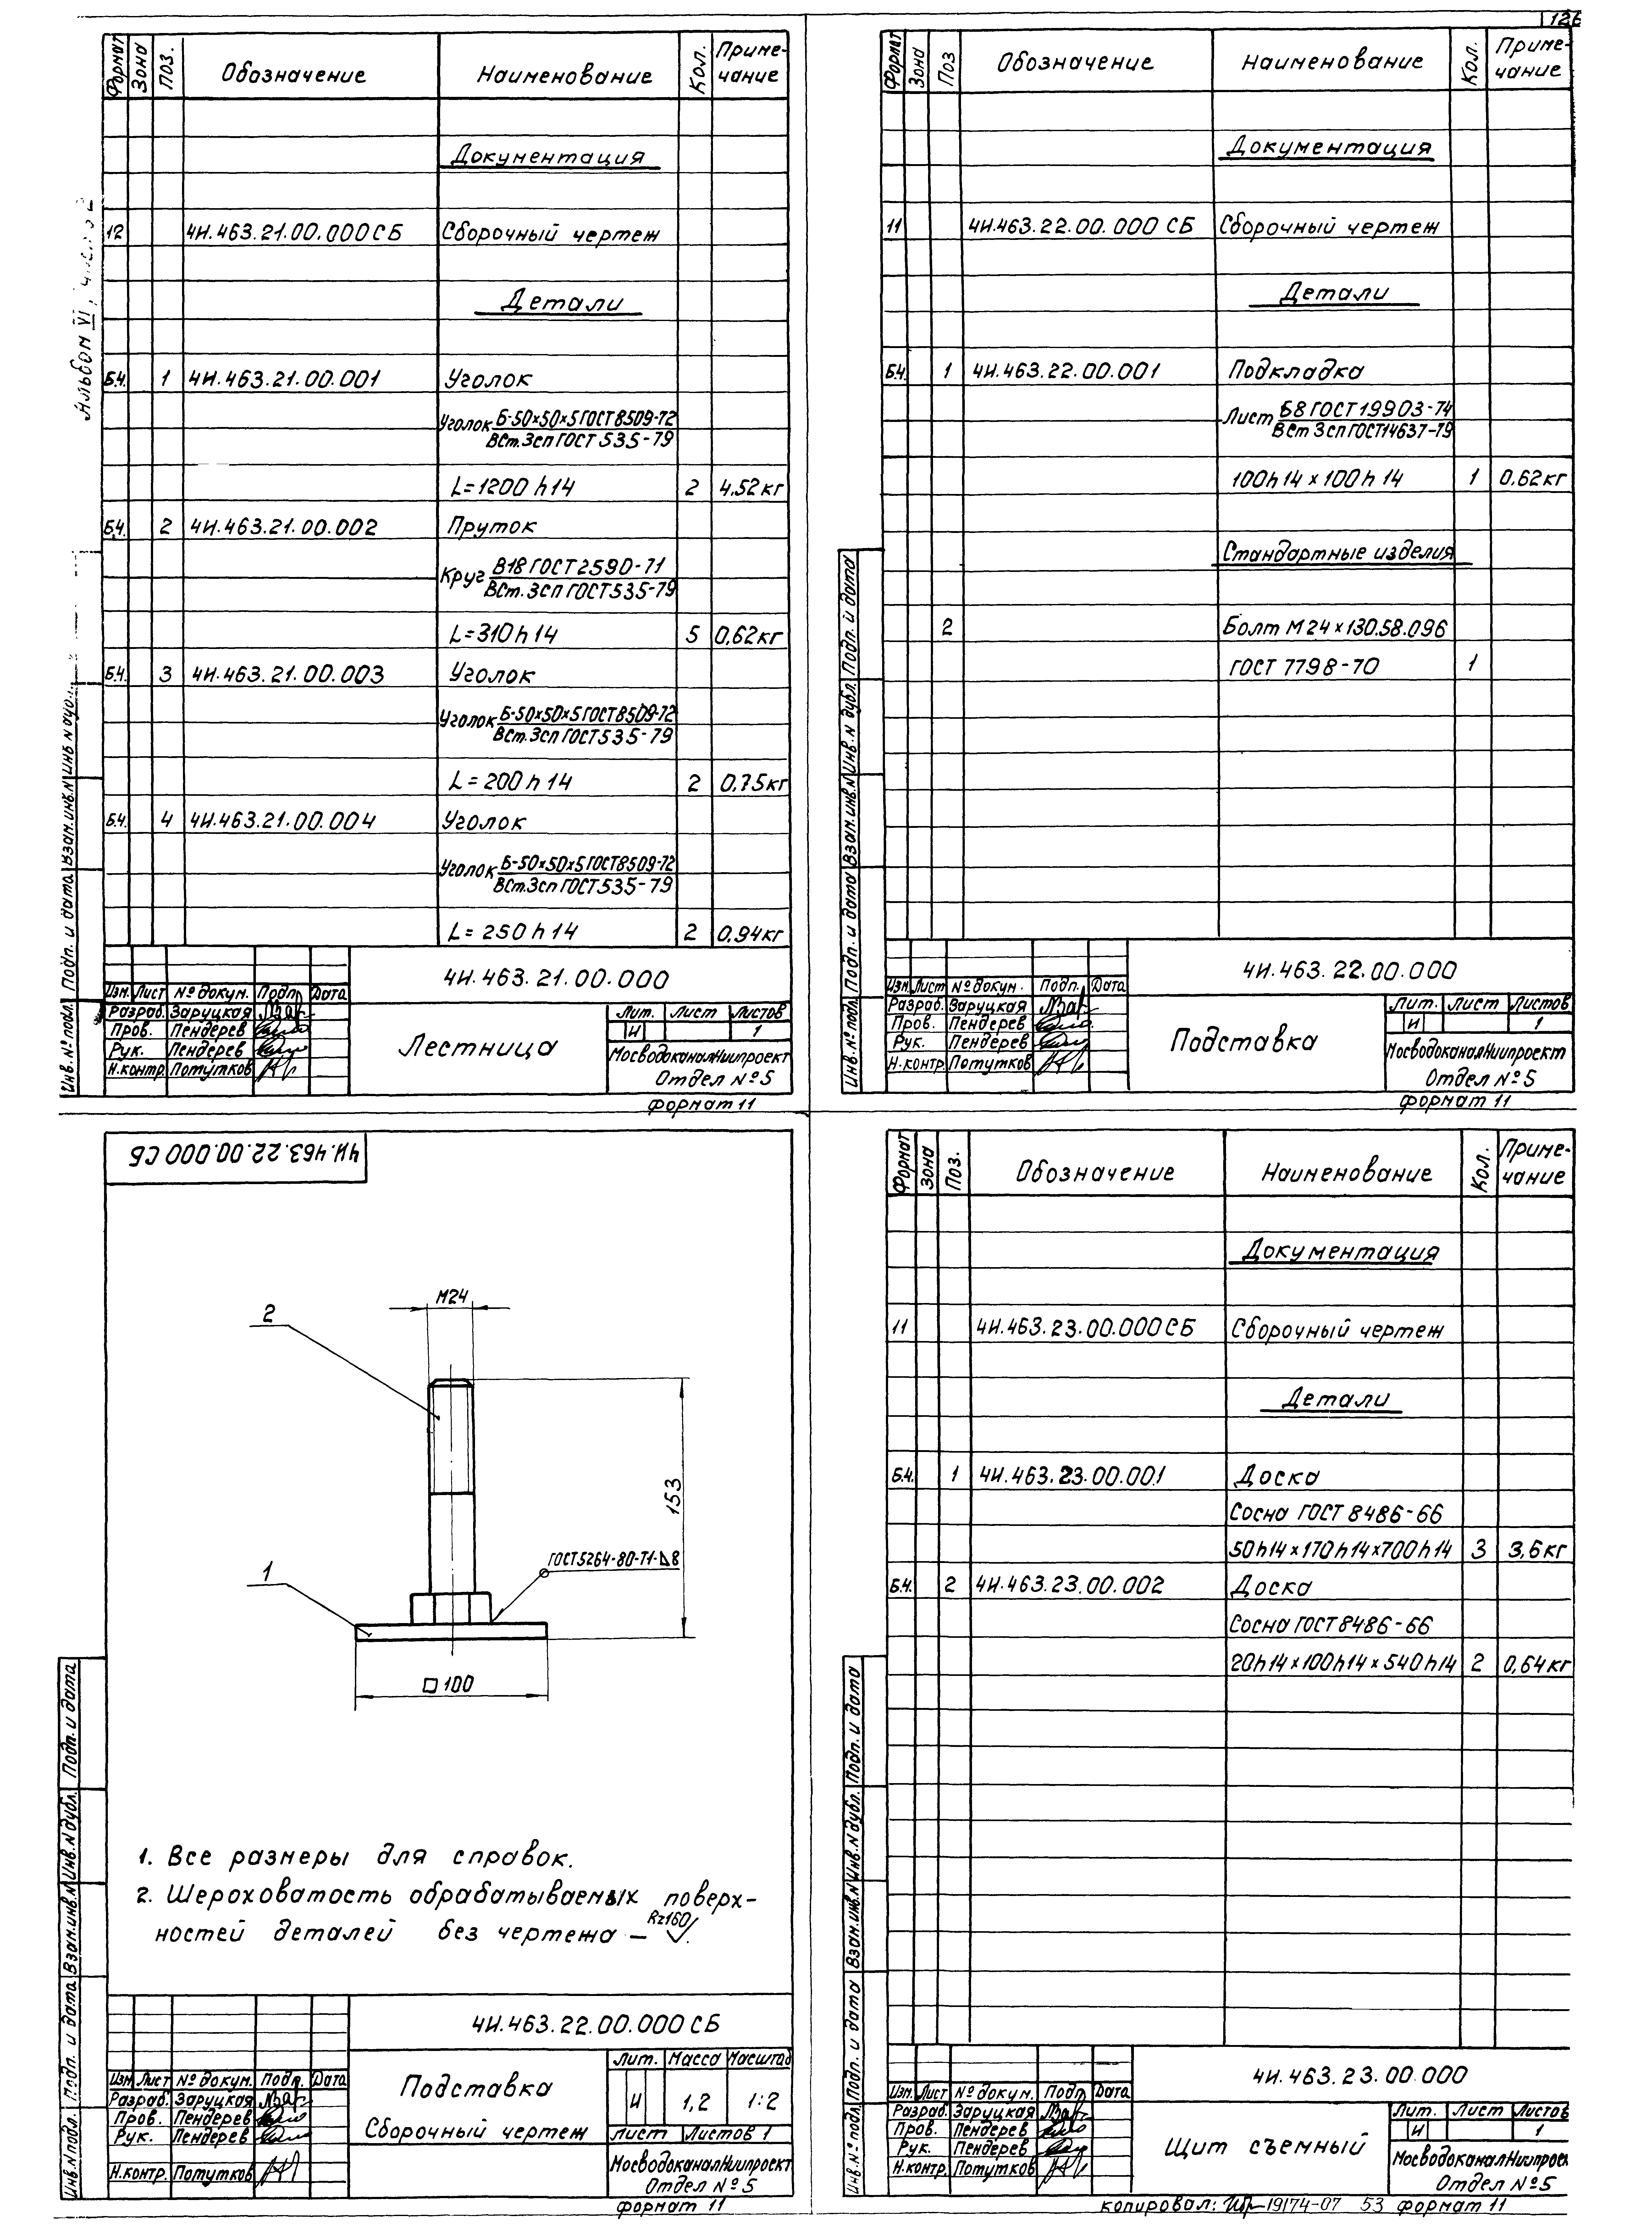 126
Альбом VI,
Формат Зона Поз. Обозначение Наименование Кол. Приме-
чание
Документация
12 4И.463.21.00.000СБ Сборочный чертеж
Детали
Б.Ч. 1 4И.463.21.00.001 Уголок
Уголок Б-50х50х5 ГОСТ 8509-72
ВСт.3сп ГОСТ 535-79
L=1200 h14 2 4,52кг
Б.Ч. 2 4И.463.21.00.002 Пруток
Круг В18 ГОСТ 2590-71
ВСт.3сп ГОСТ 535-79
L=310 h14 5 0,62кг
Б.Ч. 3 4И.463.21.00.003 Уголок
Уголок Б-50х50х5 ГОСТ 8509-72
ВСт.3сп ГОСТ 535-79
L=200 h14 2 0,75кг
Б.Ч. 4 4И.463.21.00.004 Уголок
Уголок Б-50х50х5 ГОСТ 8509-72
ВСт.3сп ГОСТ 535-79
L=250 h14 2 0,94кг
4И.463.21.00.000
Изм. Лист № докум. Подп. Дата
Разраб. Заруцкая
Пров. Пендерев
Рук. Пендерев
Н.контр. Потутков
Лестница
Лит. Лист Листов
И 1
МосводоканалНиипроект
Отдел №5
Формат 11
Инв.№ подл. Подп. и дата Взам.инв.№ Инв.№ дубл.
Формат Зона Поз Обозначение Наименование Кол. Приме-
чание
Документация
11 4И.463.22.00.000 СБ Сборочный чертеж
Детали
Б.Ч. 1 4И.463.22.00.001 Подкладка
Лист Б8 ГОСТ 19903-74
ВСт 3сп ГОСТ 14637-79
100h14х100h14 1 0,62кг
Стандартные изделия
2 Болт М24х130.58.096
ГОСТ 7798-70 1
4И.463.22.00.000
Изм. Лист № докум. Подп. Дата
Разраб. Заруцкая
Пров. Пендерев
Рук. Пендерев
Н.контр. Потутков
Подставка
Лит. Лист Листов
И 1
МосводоканалНиипроект
Отдел №5
Формат 11
Инв.№ подл. Подп. и дата Взам.инв.№ Инв.№ дубл. Подп. и дата
4И.463.22.00.000 СБ
М24
2
153
ГОСТ 5264-80-Т1-⊿8
1
□100
1. Все размеры для справок.
2. Шероховатость обрабатываемых поверх-
ностей деталей без чертежа – Rz160.
4И.463.22.00.000 СБ
Изм. Лист № докум. Подп. Дата
Разраб. Заруцкая
Пров. Пендерев
Рук. Пендерев
Н.контр. Потутков
Подставка
Сборочный чертеж
Лит. Масса Масштаб
И 1,2 1:2
Лист Листов 1
МосводоканалНиипроект
Отдел №5
Формат 11
Инв.№ подл. Подп. и дата Взам.инв.№ Инв.№ дубл. Подп. и дата
Формат Зона Поз. Обозначение Наименование Кол. Приме-
чание
Документация
11 4И.463.23.00.000СБ Сборочный чертеж
Детали
Б.Ч. 1 4И.463.23.00.001 Доска
Сосна ГОСТ 8486-66
50h14х170h14х700h14 3 3,6кг
Б.Ч. 2 4И.463.23.00.002 Доска
Сосна ГОСТ 8486-66
20h14х100h14х540h14 2 0,64кг
4И.463.23.00.000
Изм. Лист № докум. Подп. Дата
Разраб. Заруцкая
Пров. Пендерев
Рук. Пендерев
Н.контр. Потутков
Щит съемный
Лит. Лист Листов
И 1
МосводоканалНиипроек
Отдел №5
Инв.№ подл. Подп. и дата Взам.инв.№ Инв.№ дубл. Подп. и дата
копировал: 19174-07 53 формат 11